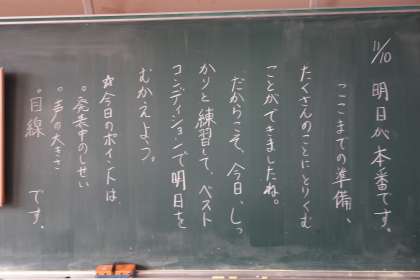 11/10
明日が本番です。
ここまでの準備、
たくさんのことにとりくむ
ことができましたね。
だからこそ、今日、しっ
かりと練習して、ベスト
コンディションで明日を
むかえよう。
☆今日のポイントは、
。発表中のしせい
。声の大きさ
。目線 です。